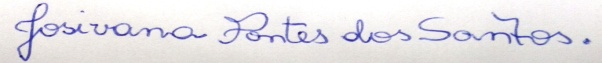 Josivana Pontes dos Santos.